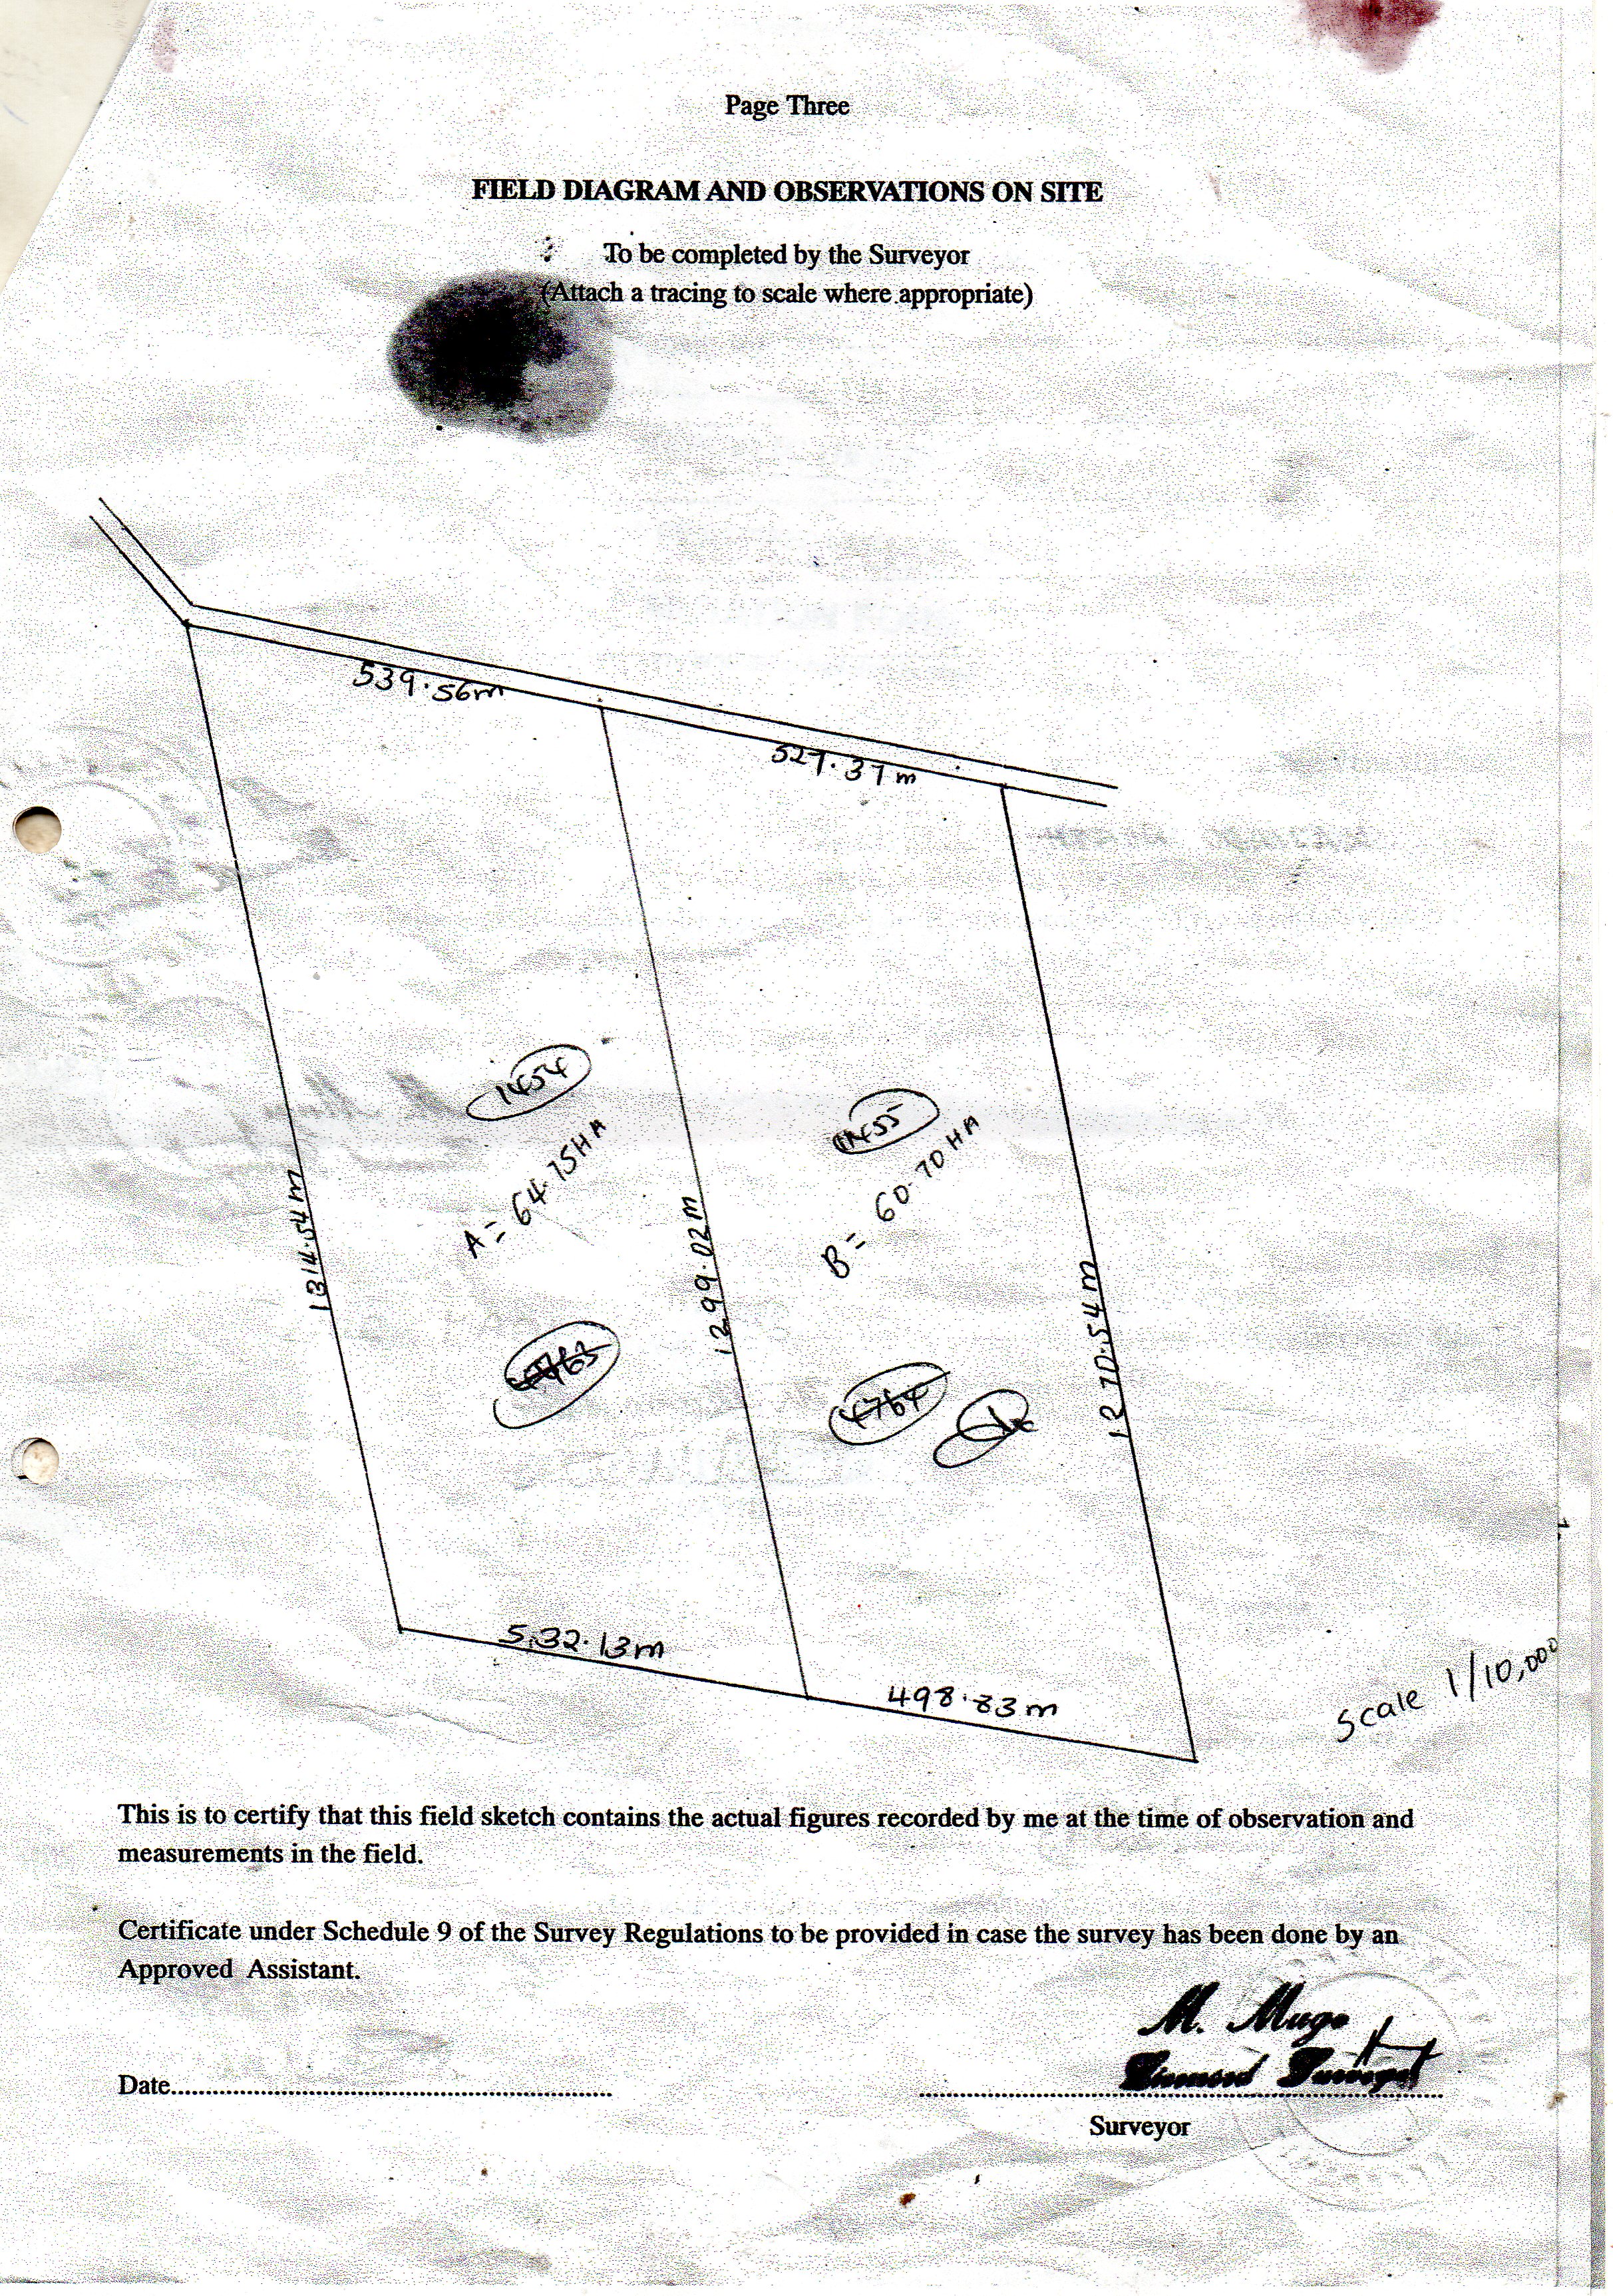 Page Three
FIELD DIAGRAM AND OBSERVATIONS ON SITE
To be completed by the Surveyor
(Attach a tracing to scale where appropriate)
539.56m
527.37m
1454
A= 64.75HA
1455
B= 60.70HA
1314.54m
1299.02m
1270.54m
4763
4764
532.13m
498.83m
Scale 1/10,000
This is to certify that this field sketch contains the actual figures recorded by me at the time of observation and
measurements in the field.
Certificate under Schedule 9 of the Survey Regulations to be provided in case the survey has been done by an
Approved Assistant.
M. Mugo
Licensed Surveyor
Date
Surveyor